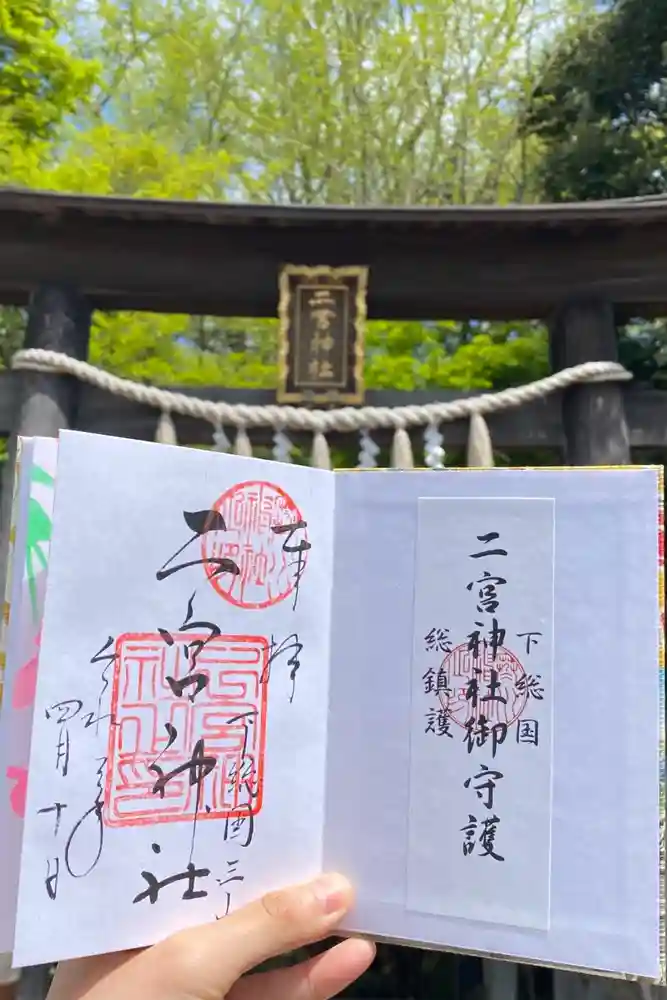 二宮神社
奉拝
下総国三山
二宮神社
令和
四月十日
下総国
二宮神社御守護
総鎮護